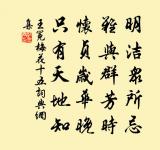 明潔眾所忌
難與群芳時
懷貞歲華晚
只有天地知
王冕梅花十五詞典網
集